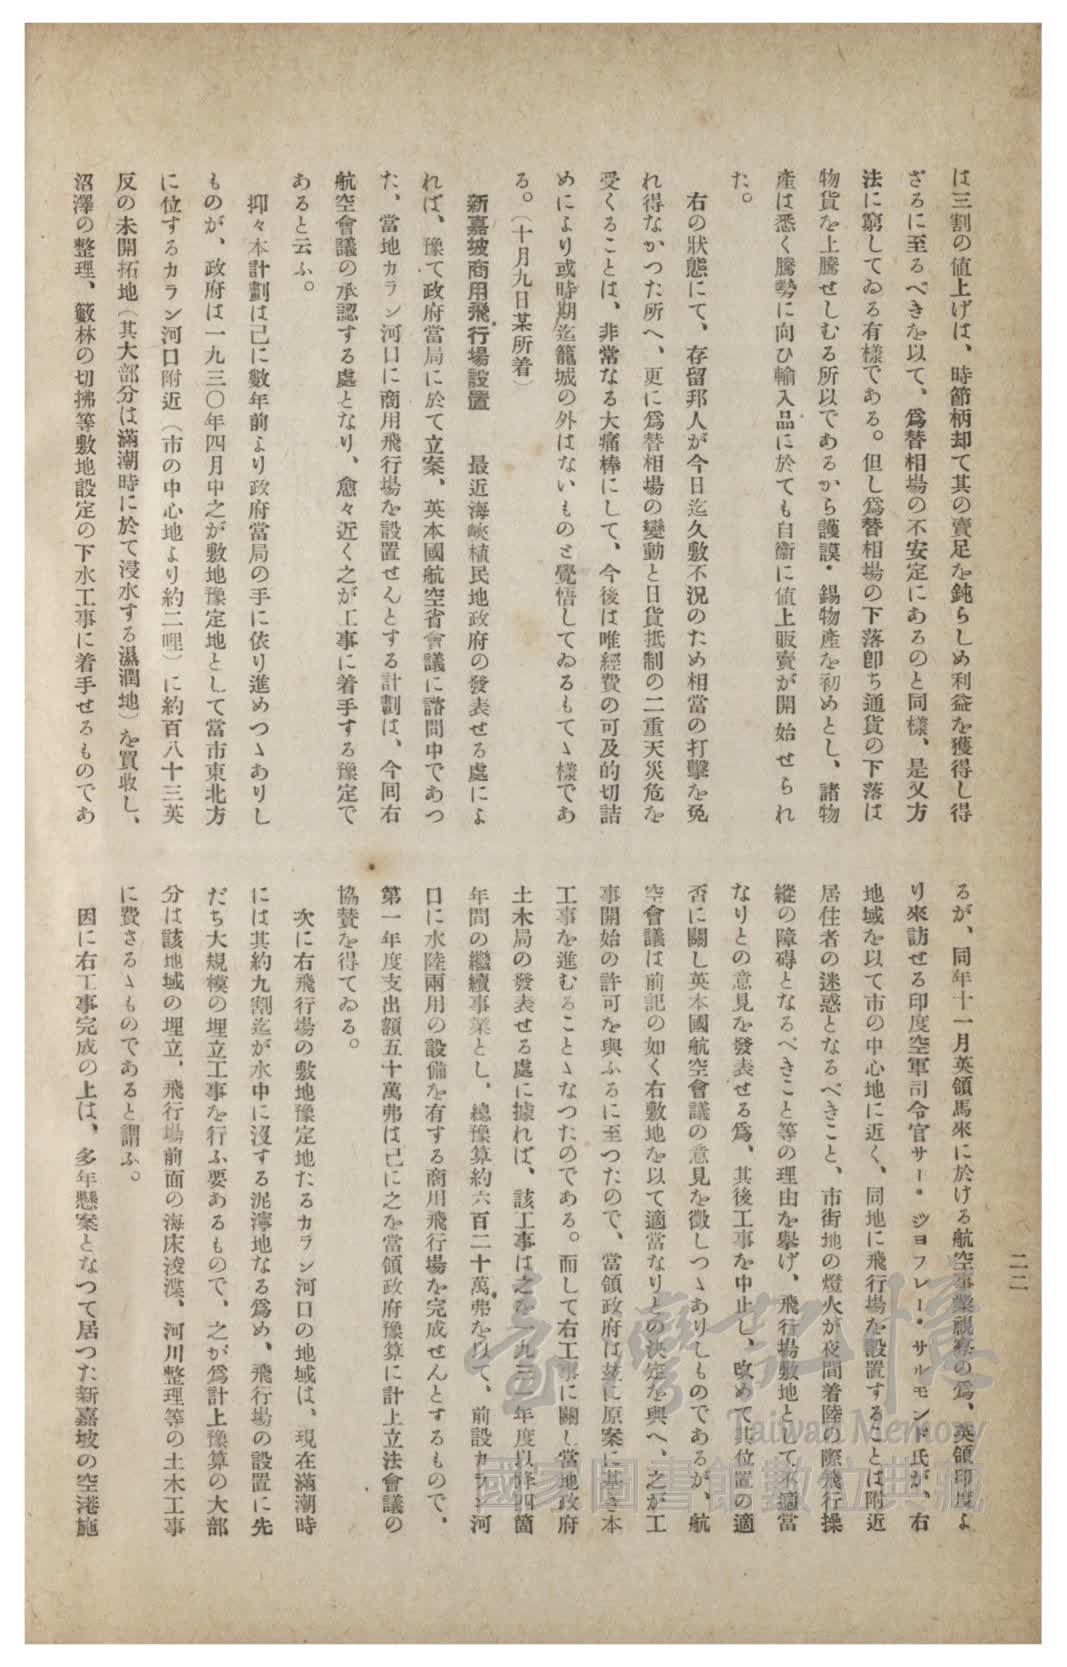 は三割の値上げは、時節柄却て其の賣足を鈍らしめ利益を獲得し得
ざるに至るべきを以て、爲替相場の不安定にあるのと同樣、是又方
法に窮してゐる有樣である。但し爲替相場の下落卽ち通貨の下落は
物貨を上騰せしむる所以であるから護謨・錫物產を初めとし、諸物
產は悉く騰勢に向ひ輸入品に於ても自衞に値上販賣が開始せられ
た。
右の狀態にて、存留邦人が今日迄久敷不況のため相當の打擊を免
れ得なかつた所へ、更に爲替相場の變動と日貨抵制の二重天災危を
受くることは、非常なる大痛棒にして、今後は唯經費の可及的切詰
めにより或時期迄籠城の外はないものと覺悟してゐるもてゝ樣であ
る。（十月九日某所着）
新嘉坡商用飛行場設置　最近海峽植民地政府の發表せる處によ
れば、豫て政府當局に於て立案、英本國航空省會議に諮問中であつ
た、當地カラン河口に商用飛行場を設置せんとする計劃は、今回右
航空會議の承認する處となり、愈々近く之が工事に着手する豫定で
あると云ふ。
抑々本計劃は已に數年前より政府當局の手に依り進めつゝありし
ものが、政府は一九三〇年四月中之が敷地豫定地として當市東北方
に位するカラン河口附近（市の中心地より約二哩）に約百八十三英
反の未開拓地（其大部分は滿潮時に於て浸水する濕潤地）を買收し、
沼澤の整理、籔林の切拂等敷地設定の下水工事に着手せるものであ
るが、同年十一月英領馬來に於ける航空事業視察の爲、英領印度よ
り來訪せる印度空軍司令官サー・ジヨフレー・サルモンド氏が、右
地域を以て市の中心地に近く、同地に飛行場を設置することは附近
居住者の迷惑となるべきこと、市街地の燈火が夜間着陸の際飛行操
縱の障碍となるべきこと等の理由を擧げ、飛行場敷地として不適當
なりとの意見を發表せる爲、其後工事を中止し、改めて其位置の適
否に關し英本國航空會議の意見を徵しつゝありしものであるが、航
空會議は前記の如く右敷地を以て適當なりとの決定を與へ、之が工
事開始の許可を與ふるに至つたので、當領政府は茲に原案に基き本
工事を進むることゝなつたのである。而して右工事に關し當地政府
土木局の發表せる處に據れば、該工事は之を一九三二年度以降四箇
年間の繼續事業とし、總豫算約六百二十萬弗を以て、前設カラン河
口に水陸兩用の設備を有する商用飛行場を完成せんとするもので、
第一年度支出額五十萬弗は已に之を當領政府豫算に計上立法會議の
協贊を得てゐる。
次に右飛行場の敷地豫定地たるカラン河口の地域は、現在滿潮時
には其約九割迄が水中に沒する泥濘地なる爲め、飛行場の設置に先
だち大規模の埋立工事を行ふ要あるもので、之が爲計上豫算の大部
分は該地域の埋立、飛行場前面の海床浚渫、河川整理等の土木工事
に費さるゝものであると謂ふ。
因に右工事完成の上は、多年懸案となつて居つた新嘉坡の空港施
二二
臺灣記憶
Taiwan Memory
國家圖書館數位典藏